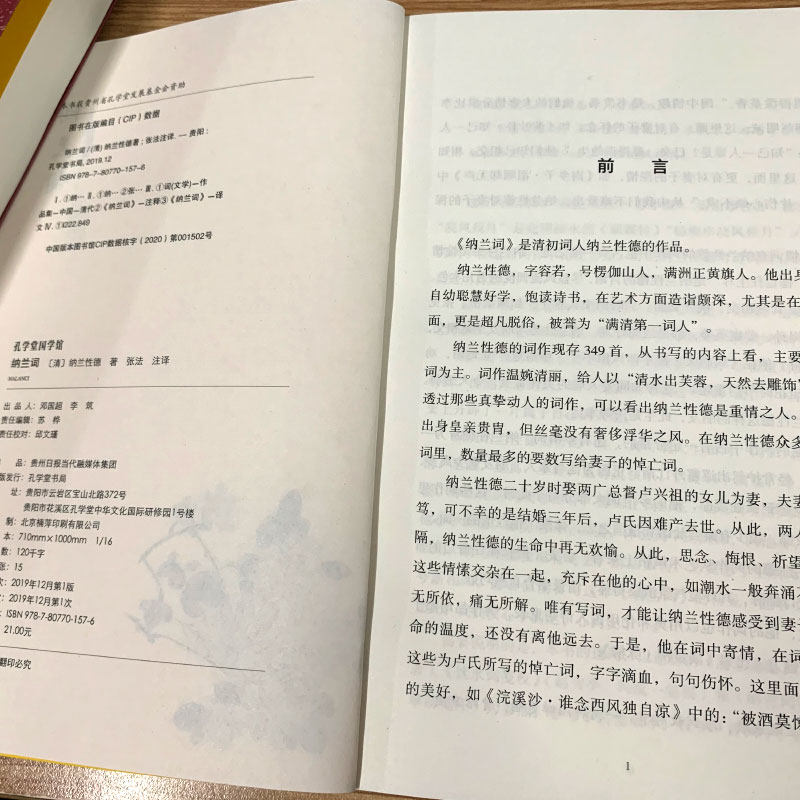 本书获贵州省孔学堂发展基金会资助
图书在版编目（CIP）数据
纳兰词 /（清）纳兰性德著；张法注译. — 贵阳：
孔学堂书局, 2019.12
ISBN 978-7-80770-157-6
Ⅰ. ①纳… Ⅱ. ①纳… ②张… Ⅲ. ①词(文学)—作
品集—中国—清代②《纳兰词》—注释③《纳兰词》—译
文 Ⅳ. ①I222.849
中国版本图书馆CIP数据核字（2020）第001502号
孔学堂国学馆
纳兰词 〔清〕纳兰性德 著 张法 注译
NALANCI
出 品 人：邓国超 李 筑
责任编辑：苏 桦
责任校对：邱文瑾
品：贵州日报当代融媒体集团
版发行：孔学堂书局
址：贵阳市云岩区宝山北路372号
贵阳市花溪区孔学堂中华文化国际研修园1号楼
制：北京楠萍印刷有限公司
本：710mm×1000mm 1/16
数：120千字
张：15
次：2019年12月第1版
次：2019年12月第1次
：ISBN 978-7-80770-157-6
21.00元
翻印必究
前 言
《纳兰词》是清初词人纳兰性德的作品。
纳兰性德，字容若，号楞伽山人，满洲正黄旗人。他出身
自幼聪慧好学，饱读诗书，在艺术方面造诣颇深，尤其是在
面，更是超凡脱俗，被誉为“满清第一词人”。
纳兰性德的词作现存 349 首，从书写的内容上看，主要
词为主。词作温婉清丽，给人以“清水出芙蓉，天然去雕饰”
透过那些真挚动人的词作，可以看出纳兰性德是重情之人。
出身皇亲贵胄，但丝毫没有奢侈浮华之风。在纳兰性德众多
词里，数量最多的要数写给妻子的悼亡词。
纳兰性德二十岁时娶两广总督卢兴祖的女儿为妻，夫妻
笃，可不幸的是结婚三年后，卢氏因难产去世。从此，两人
隔，纳兰性德的生命中再无欢愉。从此，思念、悔恨、祈望
这些情愫交杂在一起，充斥在他的心中，如潮水一般奔涌不
无所依，痛无所解。唯有写词，才能让纳兰性德感受到妻子
命的温度，还没有离他远去。于是，他在词中寄情，在词
这些为卢氏所写的悼亡词，字字滴血，句句伤怀。这里面
的美好，如《浣溪沙·谁念西风独自凉》中的：“被酒莫惊
1